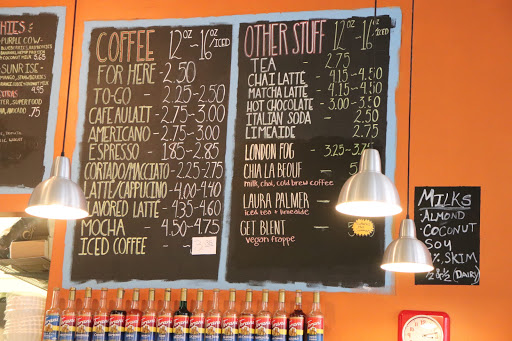 - PURPLE COW -
- SUNRISE -
4.95
.75
COFFEE 12oz - 16oz /ICED
FOR HERE - 2.50
TO-GO - 2.25 - 2.50
CAFE AULAIT - 2.75 - 3.00
AMERICANO - 2.75 - 3.00
ESPRESSO - 1.85 - 2.85
CORTADO/MACCIATO - 2.25 - 2.75
LATTÉ/CAPPUCINO - 4.00 - 4.40
FLAVORED LATTÉ - 4.35 - 4.60
MOCHA - 4.50 - 4.75
ICED COFFEE -
OTHER STUFF 12oz - 16oz /ICED
TEA - 2.75
CHAI LATTE - 4.15 - 4.50
MATCHA LATTE - 4.15 - 4.50
HOT CHOCOLATE - 3.00 - 3.50
ITALIAN SODA - 2.50
LIMEAIDE - 2.75
LONDON FOG - 3.25 - 3.75
CHIA LA BEOUF -
milk, chai, cold brew coffee
LAURA PALMER -
iced tea + limeaide
GET BLENT -
vegan frappe
MILKS
ALMOND
COCONUT
SOY
SKIM
(DAIRY)